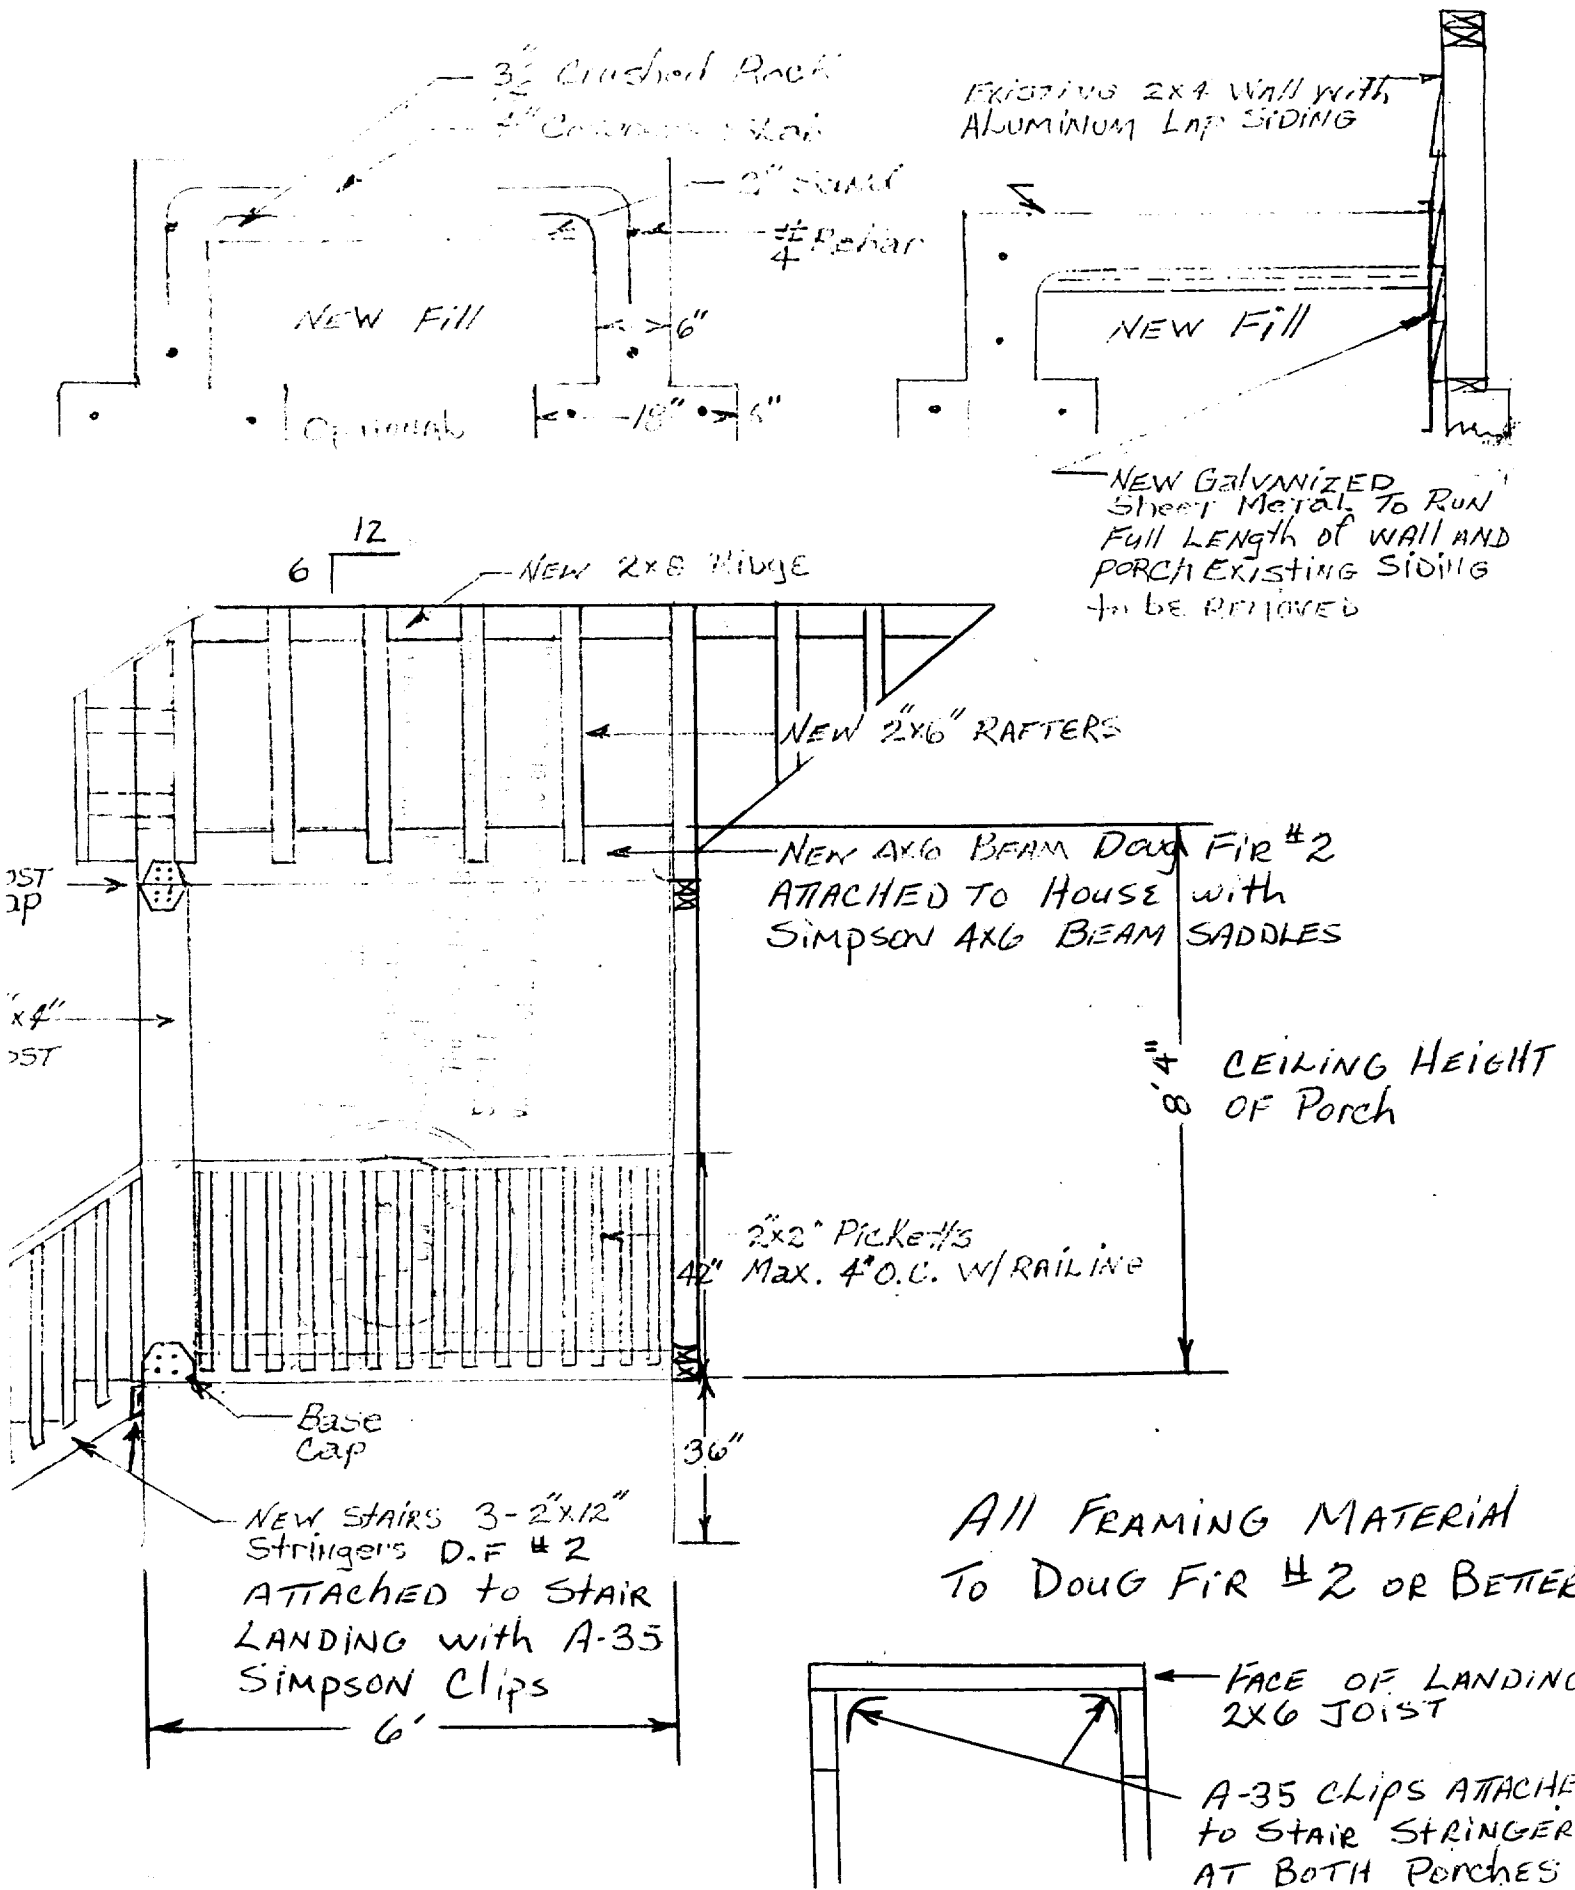 3½" Crushed Rock
4"
2" Sand
#4 Rebar
NEW Fill
6"
Optional
18"
6"
EXISTING 2x4 WAll with
ALUMINUM LAP SIDING
NEW Fill
NEW GalVANIZED
Sheet Metal To RUN
Full LENgth of WAll AND
PORCH EXISTING SIDING
to bE REMOVED
12
6
NEW 2x8 RidgE
NEW 2"x6" RAFTERS
NEW 4x6 BEAM Doug FIR #2
ATTACHED TO HOUSE with
SIMPSON 4x6 BEAM SADDLES
OST
ap
"x4"
OST
8'4"
CEILING HEIGHT
OF Porch
2"x2" Picketts
42" Max. 4" O.C. W/ RAILING
Base
Cap
36"
NEW StAIRS 3-2"x12"
Stringers D.F #2
ATTACHED to STAIR
LANDING with A-35
SIMPSON Clips
6'
All FRAMING MATERIAl
To DOUG FIR #2 OR BETTER
FACE OF LANDING
2x6 JOIST
A-35 CLIPS ATTACHE
to STAIR STRINGER
AT BOTH PorchES